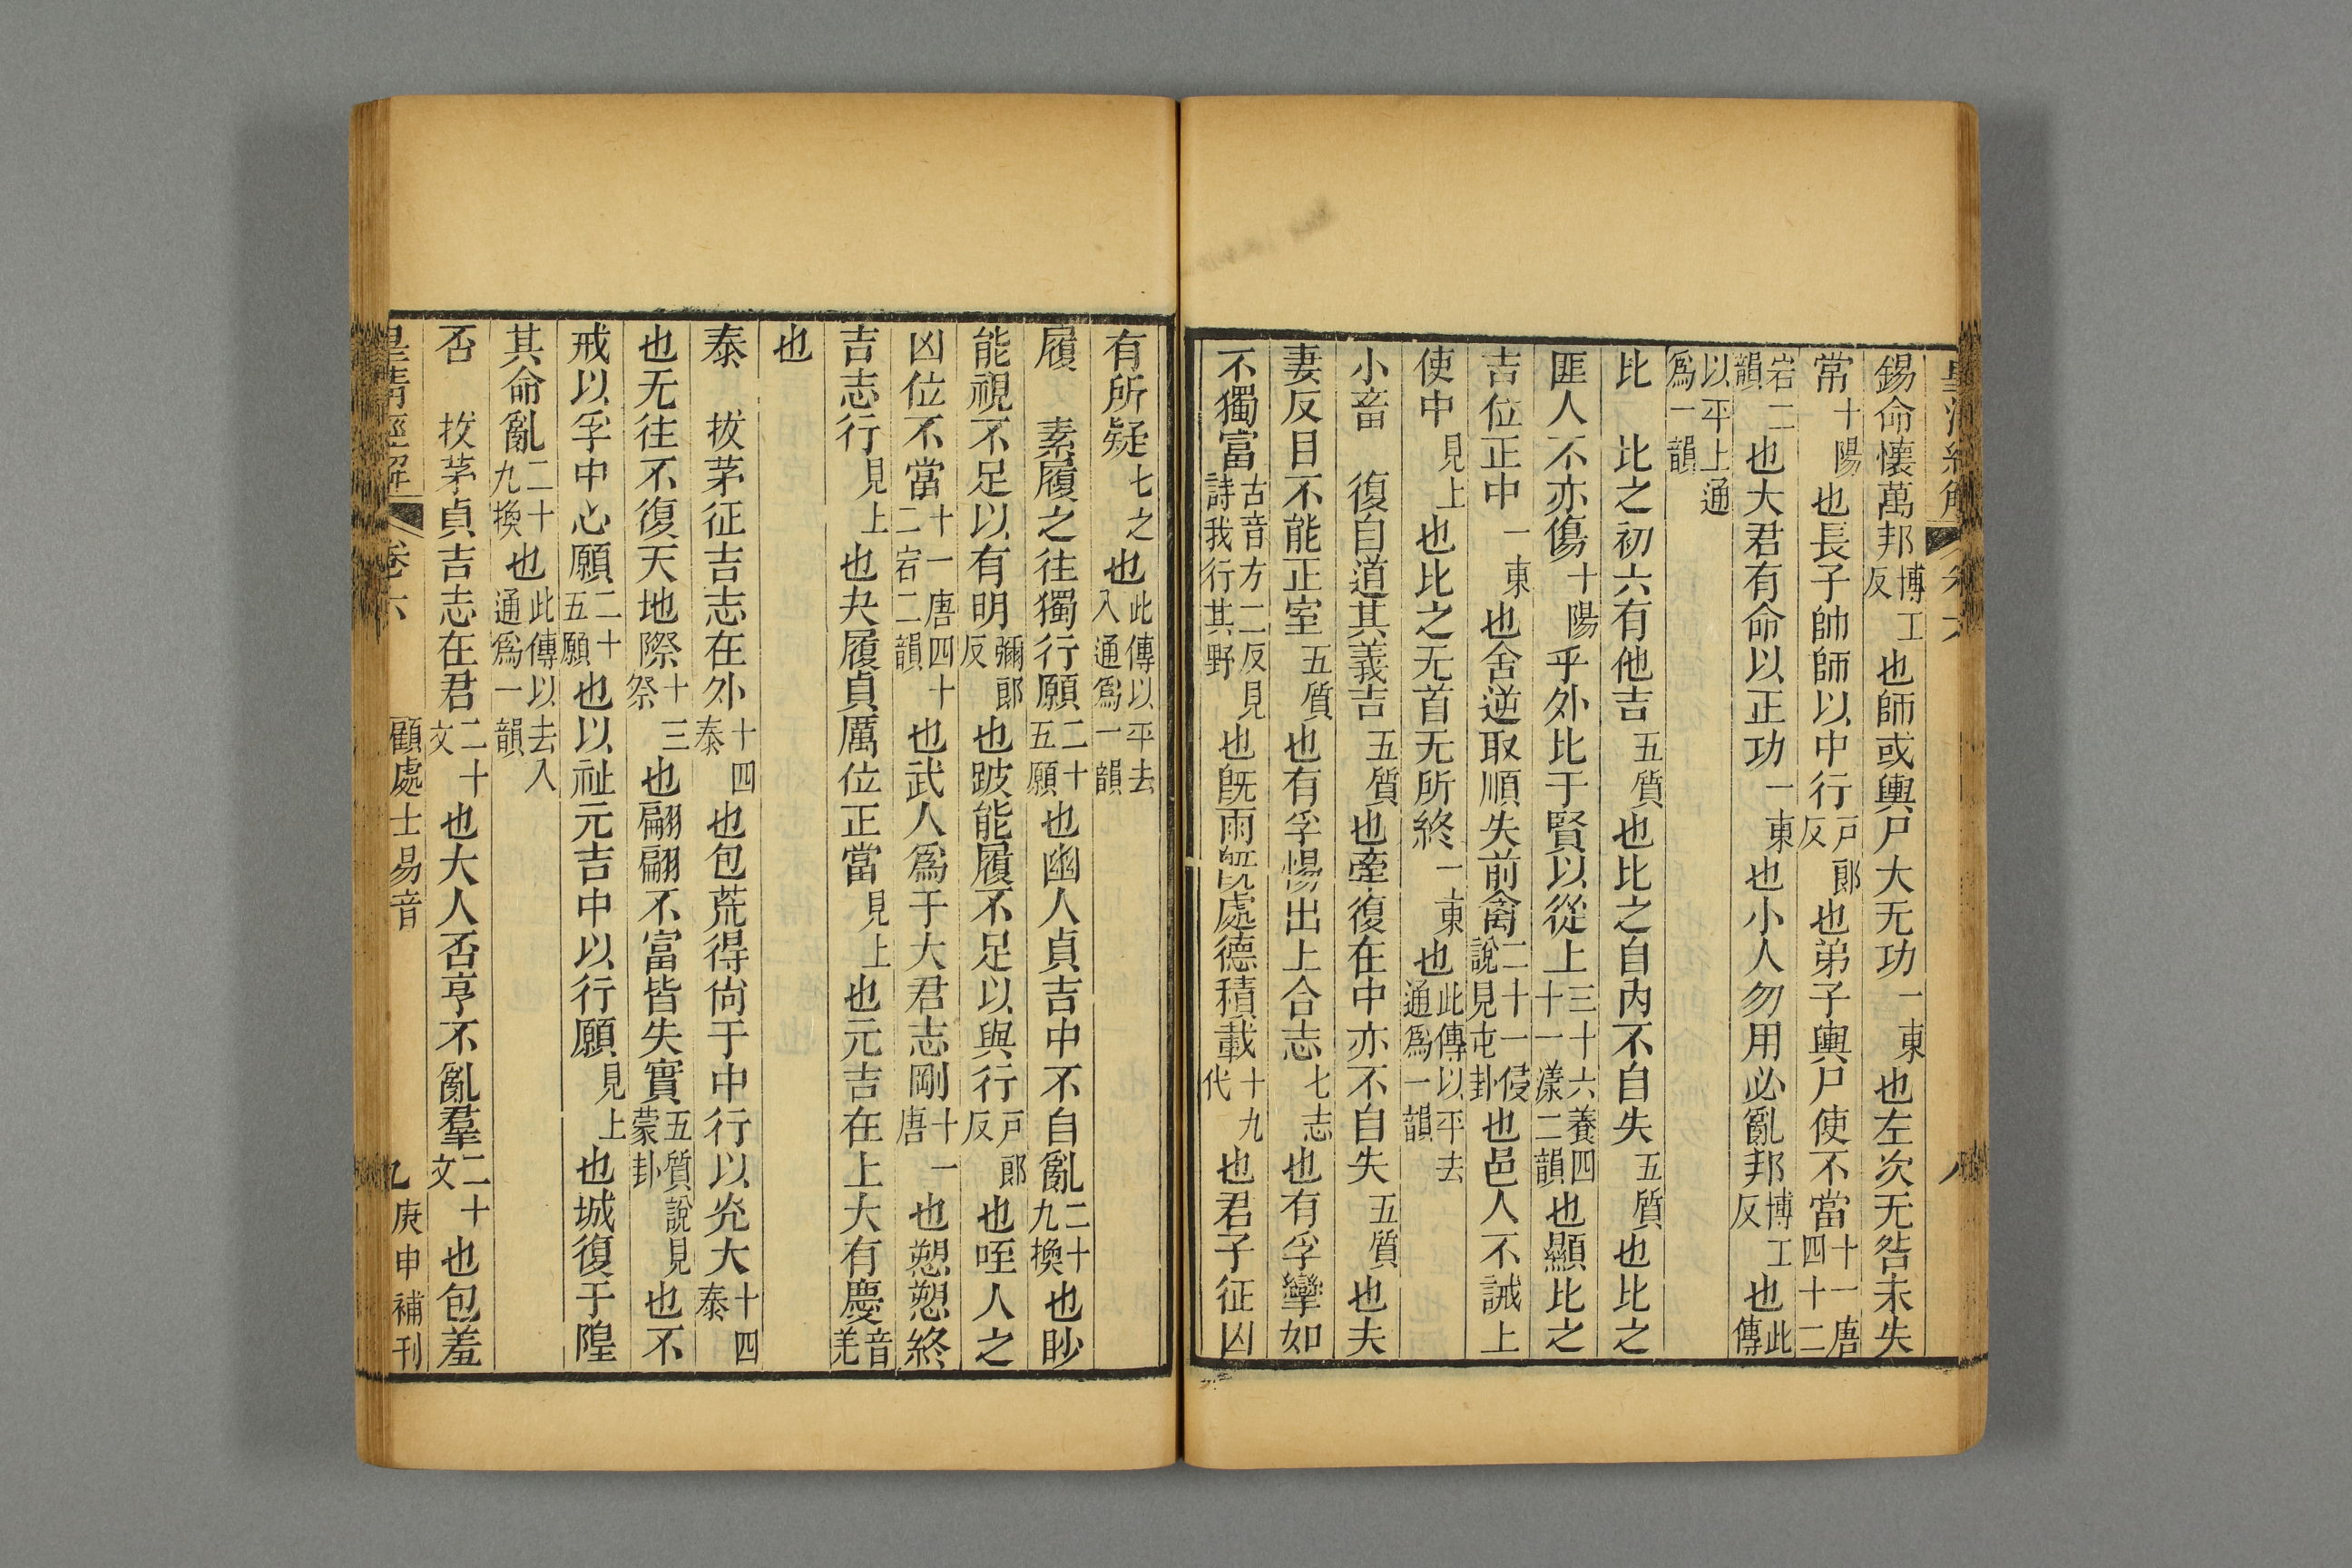 錫命懷萬邦博工反也師或輿尸大无功一東也左次无咎未失
常十陽也長子帥師以中行戸郎反也弟子輿尸使不當十一唐四十二
宕二韻也大君有命以正功一東也小人勿用必亂邦博工反也此傳
以平上通爲一韻
比 比之初六有他吉五質也比之自內不自失五質也比之
匪人不亦傷十陽乎外比于賢以從上三十六養四十一漾二韻也顯比之
吉位正中一東也舍逆取順失前禽二十一侵說見屯卦也邑人不誡上
使中見上也比之无首无所終一東也此傳以平去通爲一韻
小畜 復自道其義吉五質也牽復在中亦不自失五質也夫
妻反目不能正室五質也有孚惕出上合志七志也有孚攣如
不獨富古音方二反見詩我行其野也既雨既處德積載十九代也君子征凶
有所疑七之也此傳以平去入通爲一韻
履 素履之往獨行願二十五願也幽人貞吉中不自亂二十九換也眇
能視不足以有明彌郎反也跛能履不足以與行戸郎反也咥人之
凶位不當十一唐四十二宕二韻也武人爲于大君志剛十一唐也愬愬終
吉志行見上也夬履貞厲位正當見上也元吉在上大有慶音羌
也
泰 拔茅征吉志在外十四泰也包荒得尙于中行以光大十四泰
也无往不復天地際十三祭也翩翩不富皆失實五質說見蒙卦也不
戒以孚中心願二十五願也以祉元吉中以行願見上也城復于隍
其命亂二十九換也此傳以去入通爲一韻
否 拔茅貞吉志在君二十文也大人否亨不亂羣二十文也包羞
皇淸經解 卷六 顧處士易音 九 庚申補刊